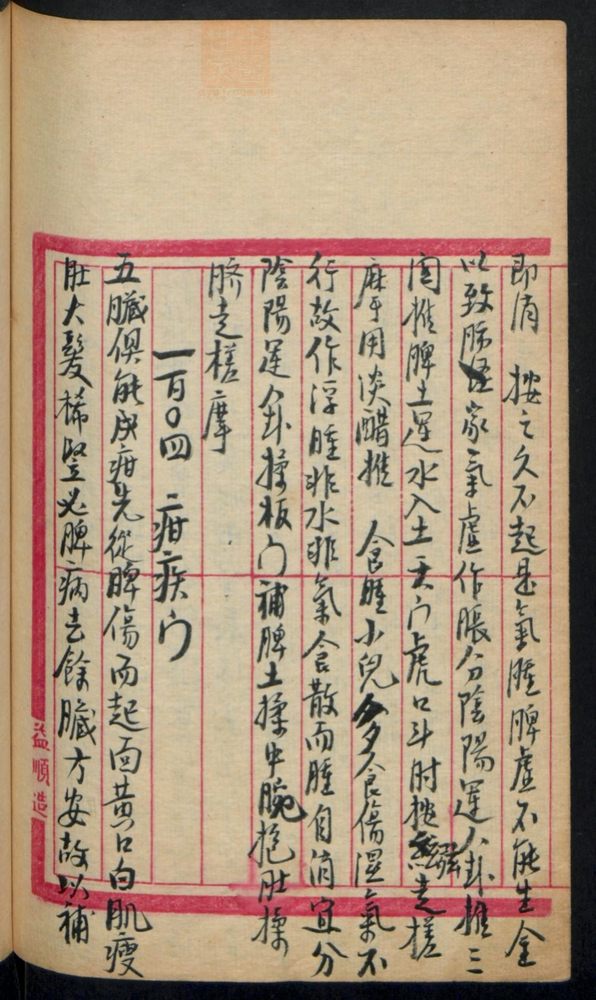 即消 按之久不起是氣腫脾虛不能生金
以致肺經家氣虛作脹分陰陽運八卦推三
関推脾土運水入土天门虎口斗肘揉走搓
麻乎用淡醋推 食腫小兒多食傷濕氣不
行故作浮腫非水非氣食散而腫自消宜分
陰陽運八卦揉板门補脾土揉中脘抱肚揉
臍走搓摩
一百〇四 疳疾门
五臟俱能成疳先從脾傷而起面黄口白肌瘦
肚大髮稀竪必脾病去餘臟方安故以補
益順造